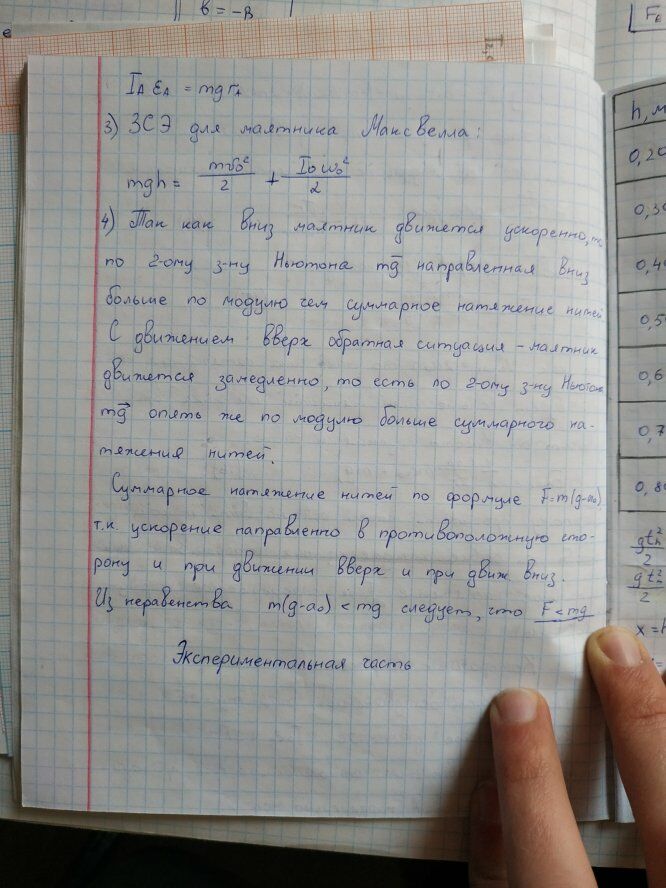 в = -В
F
I_A ε_A = mg r_A
3) ЗСЭ для маятника Максвелла:
mgh = mv₀²/2 + I₀ω₀²/2
4) Так как вниз маятник движется ускоренно, то
по 2-ому з-ну Ньютона mg⃗ направленная вниз
больше по модулю чем суммарное натяжение нитей
С движением вверх обратная ситуация - маятник
движется замедленно, то есть по 2-ому з-ну Ньютона
mg⃗ опять же по модулю больше суммарного на-
тяжения нитей.
Суммарное натяжение нитей по формуле F=m(g-a₀)
т.к. ускорение направленно в противоположную сто-
рону и при движении вверх и при движ вниз.
Из неравенства m(g-a₀) < mg следует, что F < mg
Экспериментальная часть
h, м
0,20
0,30
0,4
0,5
0,6
0,7
0,8
gt²/2
gt²/2
x =